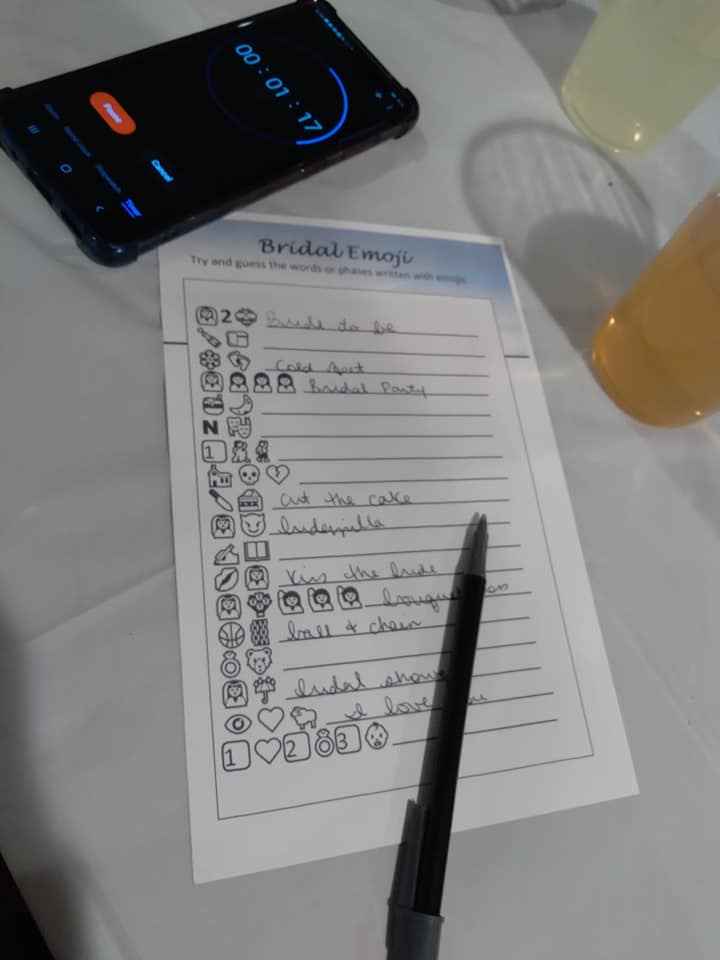 00 : 01 : 17
Pause
Cancel
Timer
Bridal Emoji
Try and guess the words or phases written with emojis
2 Bride to be
Cold feet
Bridal Party
N
1
cut the cake
bridezilla
kiss the bride
bouquet
ball & chain
bridal
I love
1 2 3